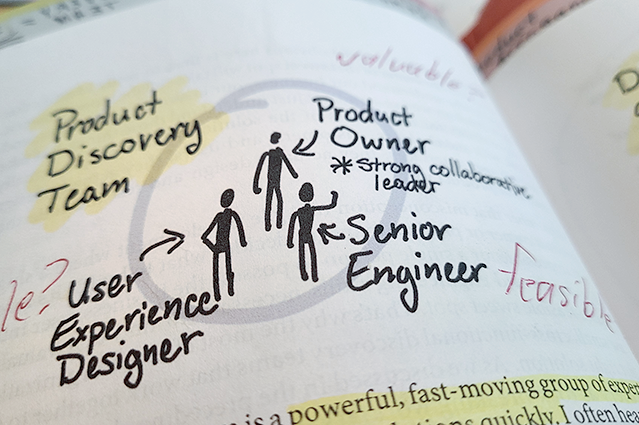 valuable?
Product
Discovery
Team
Product
Owner
* Strong collaborative
leader
Senior
Engineer
feasible
le?
User
Experience
Designer
is a powerful, fast-moving group of expe
quickly. I often hea